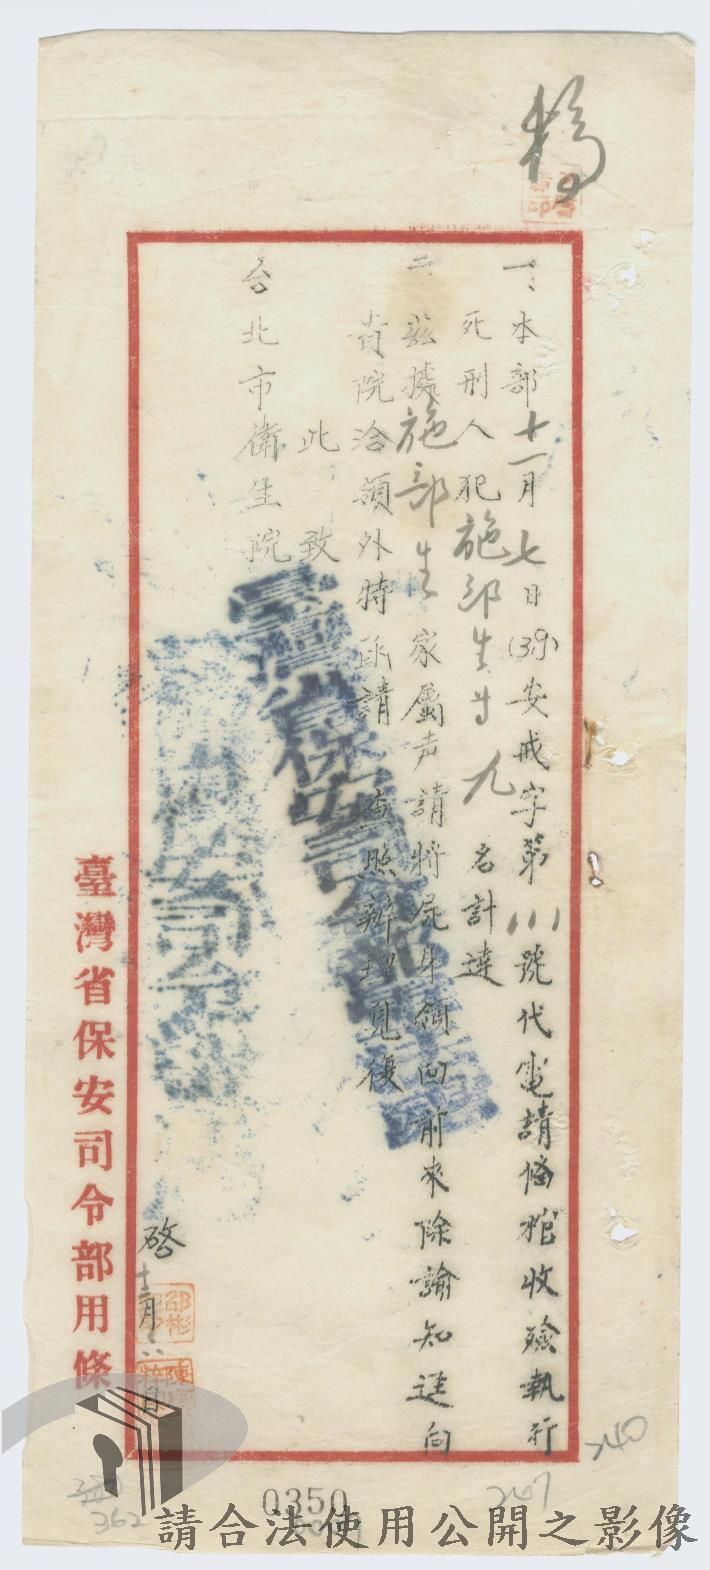 稿
一、本部十一月七日(39)安戒字第111號代電請俻棺收殮執行
死刑人犯施部生等九名計達
二、玆據施部生家屬声請將屍身領囬前來除諭知逕向
貴院洽領外特函請查照辦理見復
此致
台北市衛生院
臺灣省保安司令部
啓十一月八日
臺灣省保安司令部用條
0350
362
240
請合法使用公開之影像